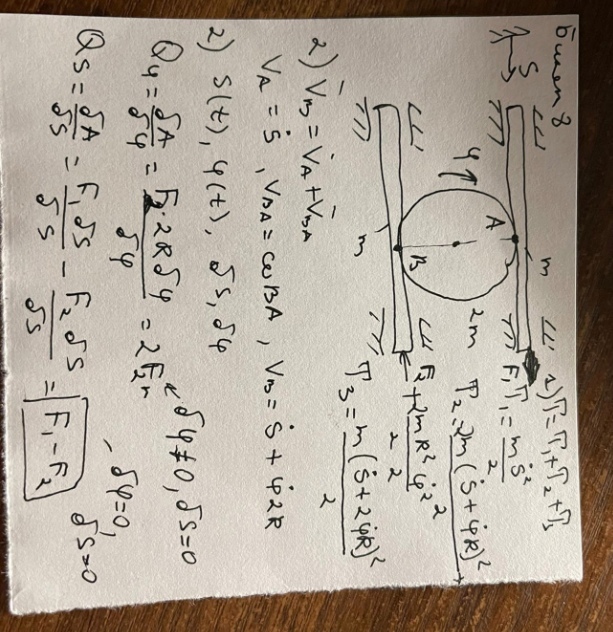 Билет 8
S
A
φ
B
m
2m
m
F₁
F₂
1) T = T₁ + T₂ + T₃
T₁ = mṡ²/2
T₂ = 2m(ṡ + φ̇R)²/2 + 2mR²φ̇²/2·2
T₃ = m(ṡ + 2φ̇R)²/2
2) V̄_B = V̄_A + V̄_BA
V_A = ṡ, V_BA = ωBA, V_B = ṡ + φ̇2R
2) s(t), φ(t), δs, δφ
Qφ = δA/δφ = F₂·2Rδφ/δφ = 2F₂R
δφ ≠ 0, δs = 0
Qs = δA/δs = F₁δs/δs − F₂δs/δs = F₁ − F₂
δφ = 0,
δs ≠ 0